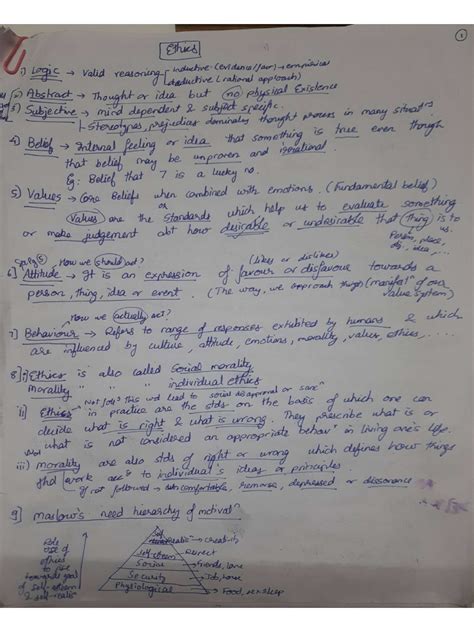 1
Ethics
1) Logic → Valid reasoning inductive (evidence/fair) → empirical
deductive (rational approach)
2) Abstract → Thought or idea but no physical Existence
3) Subjective → mind dependent & subject specific.
↳ Stereotypes, prejudices dominates thought process in many situatns
4) Belief → Internal feeling or idea that something is true even though
that belief may be unproven and irrational.
Eg: Belief that 7 is a lucky no.
5) Values → Core Beliefs when combined with emotions. (Fundamental belief)
or Values are the standards which help us to evaluate something
or make judgement abt how desirable or undesirable that thing is to us
Person, place, obj, idea...
How we should act? (Likes or dislikes)
6] Attitude → It is an expression of favour or disfavour towards a
person, thing, idea or event. (The way, we approach things) (manifestn of our value system)
How we actually act?
7) Behaviour → Refers to range of responses exhibited by humans & which
are influenced by culture, attitude, emotions, morality, values, ethics, ....
8) i) Ethics is also called social morality
Morality " " " individual ethics
Not foll? This wd lead to social disapproval or sancn
ii) Ethics in practice are the stds on the basis of which one can
decide what is right & what is wrong. They prescribe what is or
what is not considered an appropriate behavr in living one's life.
iii) Morality are also stds of right or wrong which defines how things
shd work acc to individual's ideas or principles.
↳ If not followed → uncomfortable, remorse, depressed or dissonance
9] Maslow's need hierarchy of motivatn
Role
Use of
ethics
towards goal
of self-esteem
& self-
Self
→ creativity
Self esteem → Respect
Social → Friends, love
Security → Job, house
Physiological → Food, sex, sleep